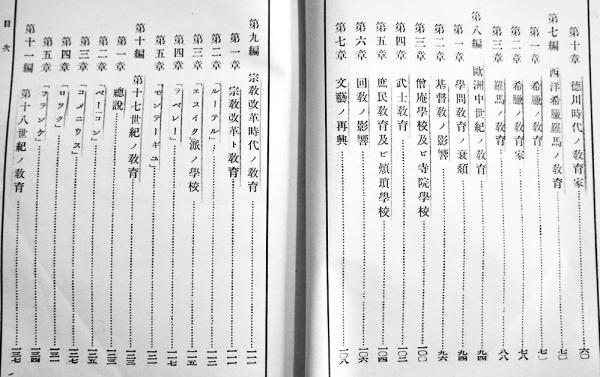 第十章 德川時代ノ教育家 六〇
第七編 西洋希臘羅馬ノ教育 七〇
第一章 希臘ノ教育 七〇
第二章 希臘ノ教育家 七七
第三章 羅馬ノ教育 八八
第八編 歐洲中世紀ノ教育 九四
第一章 學問教育ノ衰頽 九四
第二章 基督教ノ影響 九六
第三章 僧庵學校及ビ寺院學校 一〇〇
第四章 武士教育
第五章 庶民教育及ビ煩瑣學校 一〇四
第六章 回教ノ影響 一〇六
第七章 文藝ノ再興 一〇八
第九編 宗教改革時代ノ教育 一一一
第一章 宗教改革ト教育 一一一
第二章 「ルーテル」 一一三
第三章 「エスイタ」派ノ學校 一一五
第四章 「ラベレー」 一一七
第五章 「モンテーギユ」
第十編 十七世紀ノ教育 一二三
第一章 總說 一二三
第二章 「ベーコン」 一二五
第三章 「コメニウス」 一二七
第四章 「ロック」 一三一
第五章 「フランケ」 一三四
第十一編 第十八世紀ノ教育 一三七
目次